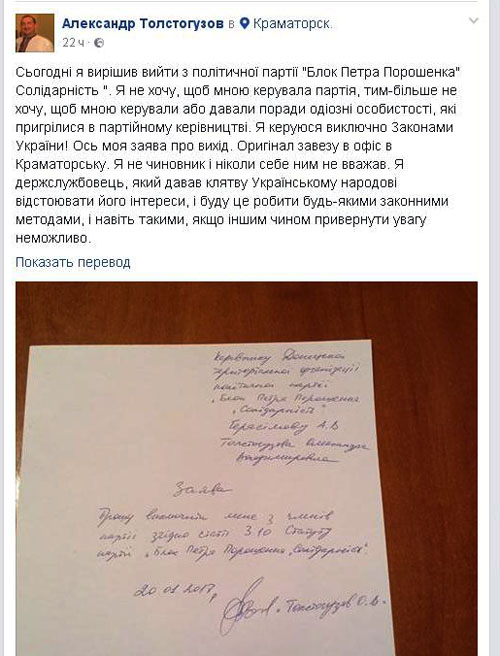 Александр Толстогузов в Краматорск.
22 ч ·
Сьогодні я вирішив вийти з політичної партії "Блок Петра Порошенка"
Солідарність ". Я не хочу, щоб мною керувала партія, тим-більше не
хочу, щоб мною керували або давали поради одіозні особистості, які
пригрілися в партійному керівництві. Я керуюся виключно Законами
України! Ось моя заява про вихід. Оригінал завезу в офіс в
Краматорську. Я не чиновник і ніколи себе ним не вважав. Я
держслужбовець, який давав клятву Українському народові
відстоювати його інтереси, і буду це робити будь-якими законними
методами, і навіть такими, якщо іншим чином привернути увагу
неможливо.
Показать перевод
Керівнику Донецької
територіальної організації
політичної партії
„Блок Петра Порошенка
„Солідарність"
Герасімову А.В
Толстогузова Олександра
Володимировича
Заява
Прошу виключити мене з членів
партії згідно статті 3.10 Статуту
партії „Блок Петра Порошенка „Солідарність".
20 01 2017р
Толстогузов О.В.